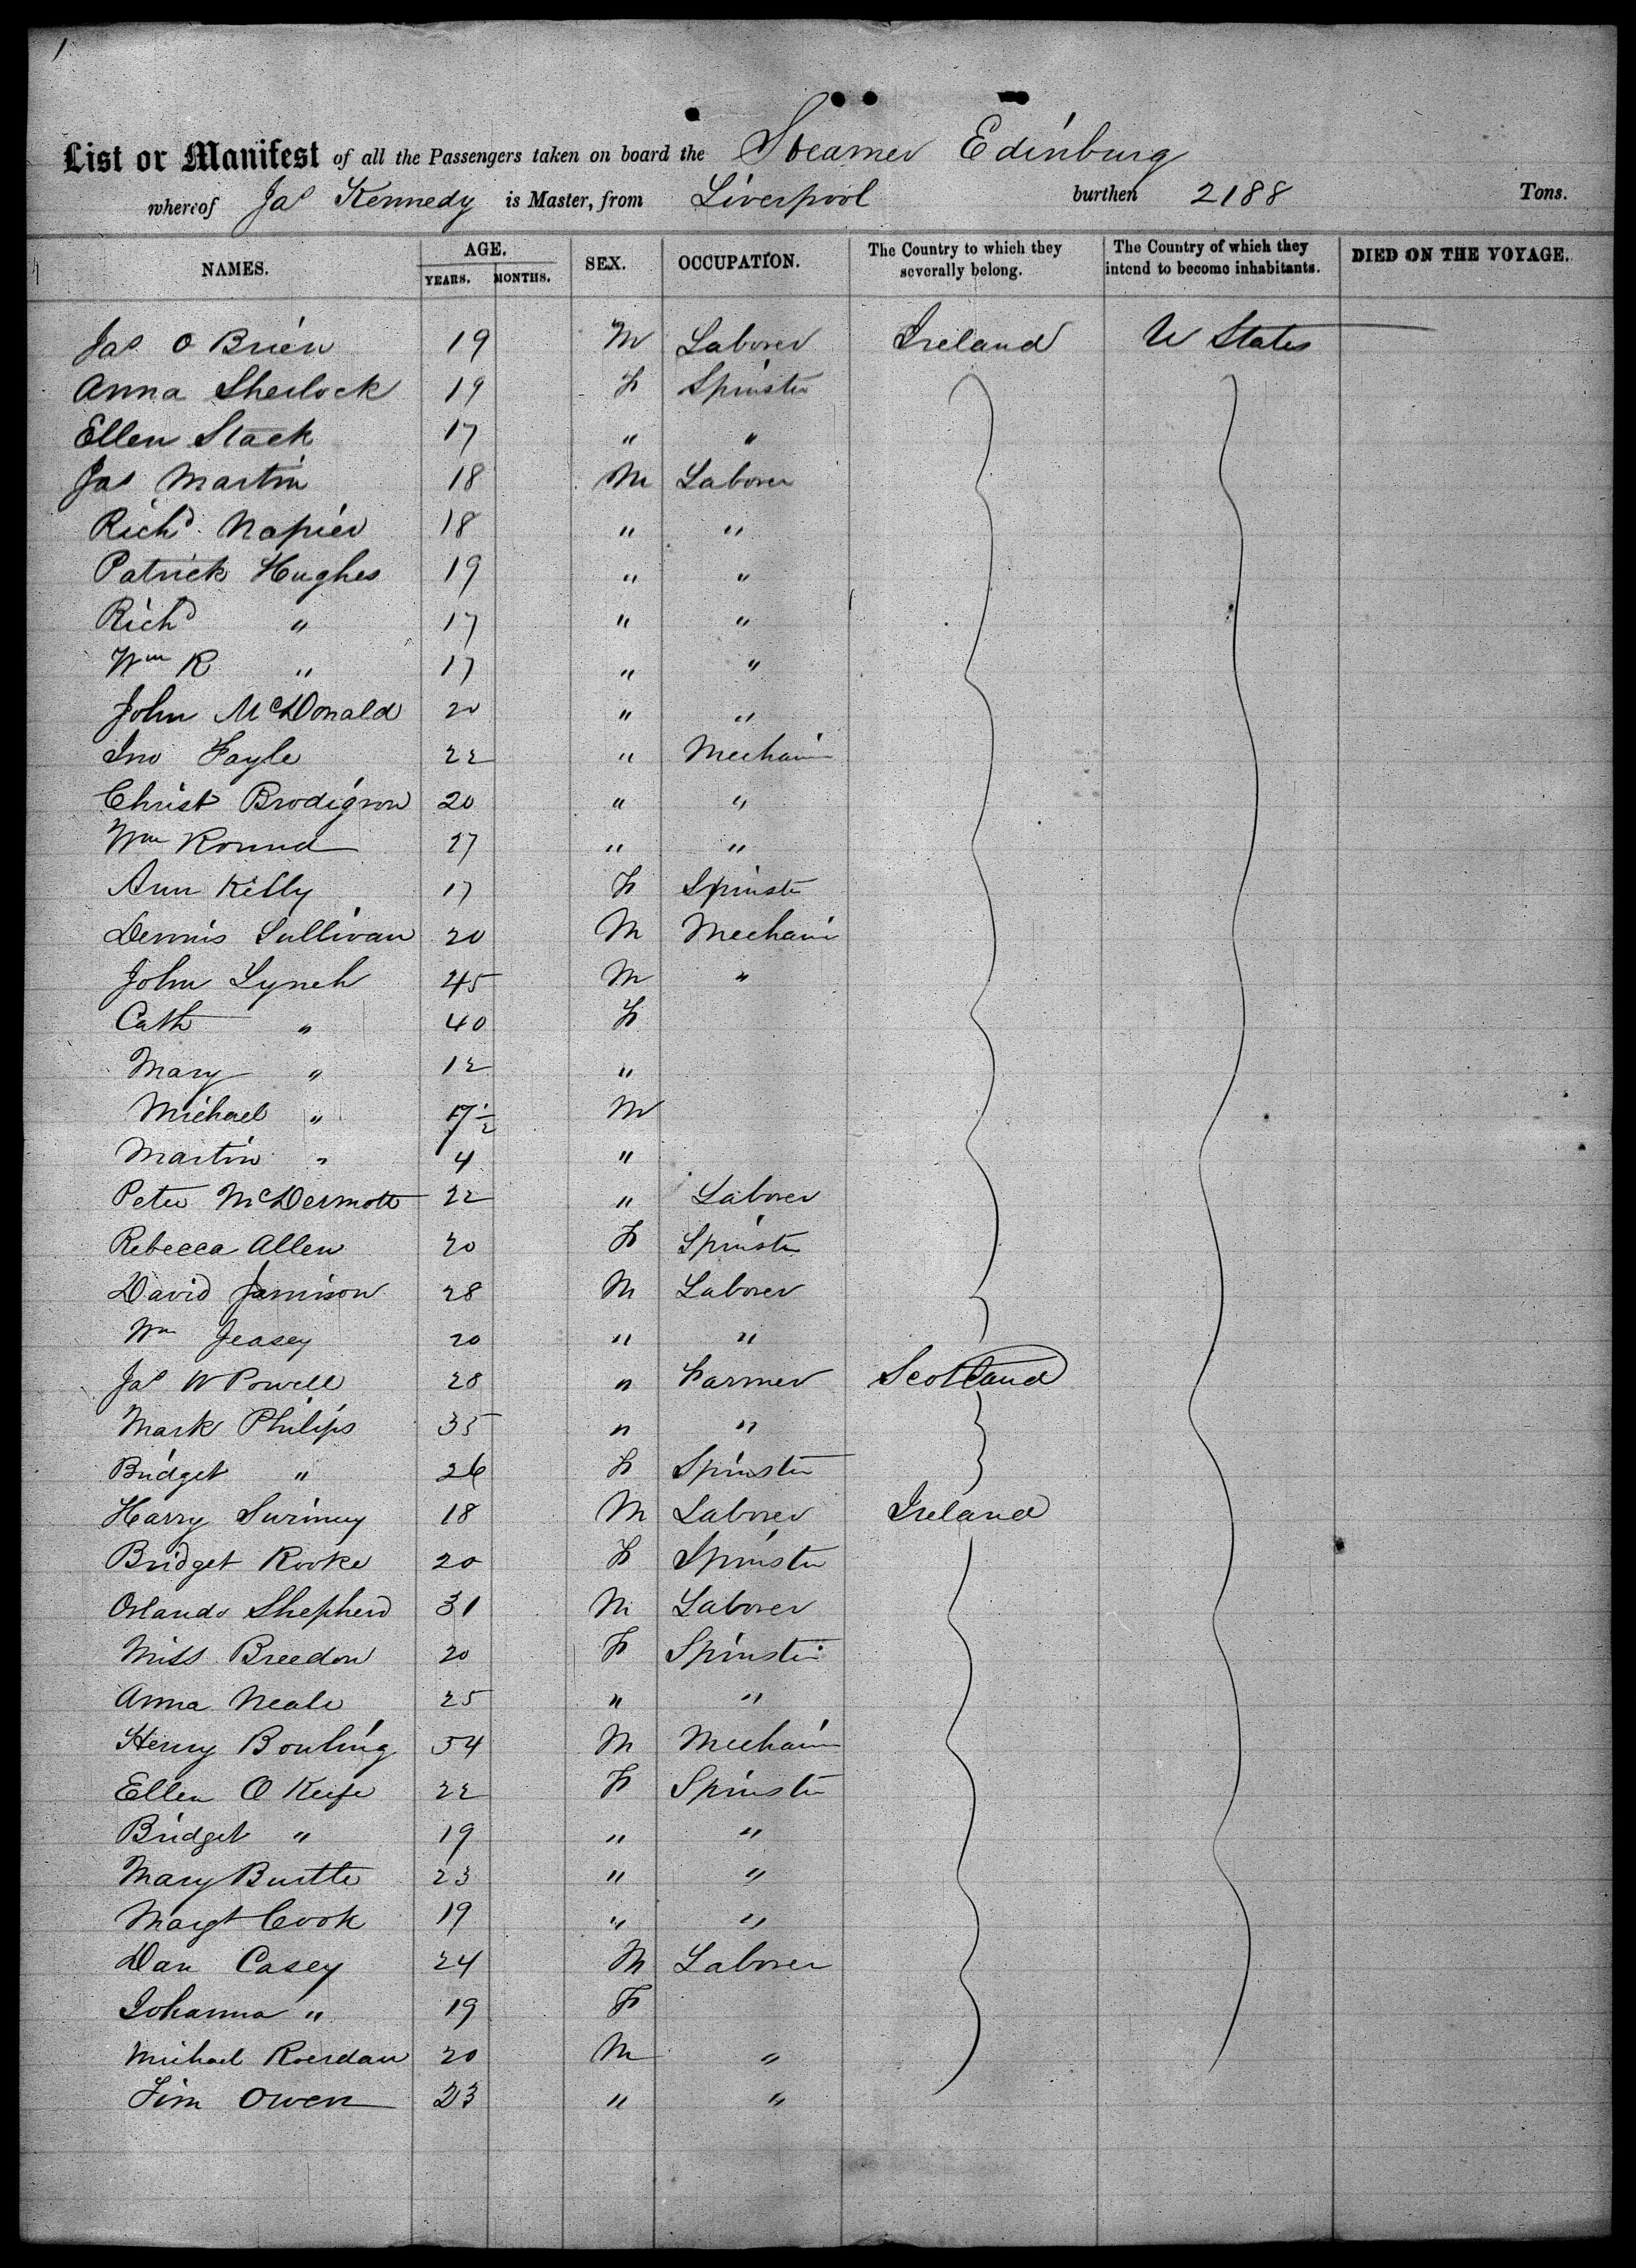 1
List or Manifest of all the Passengers taken on board the Steamer Edinburg
whereof Jas Kennedy is Master, from Liverpool burthen 2188 Tons.
NAMES. AGE. YEARS. MONTHS. SEX. OCCUPATION. The Country to which they severally belong. The Country of which they intend to become inhabitants. DIED ON THE VOYAGE.
Jas O Brien 19 M Laborer Ireland U States
Anna Sherlock 19 F Spinster
Ellen Stack 17 " "
Jas Martin 18 M Laborer
Richd Napier 18 " "
Patrick Hughes 19 " "
Richd " 17 " "
Wm R " 17 " "
John McDonald 20 " "
Jno Fayle 22 " Mechanic
Christ Brodigron 20 " "
Wm Round 27 " "
Ann Kelly 17 F Spinster
Dennis Sullivan 20 M Mechanic
John Lynch 45 M "
Cath " 40 F
Mary " 12 "
Michael " M
Martin " 4 "
Peter McDermott 22 " Laborer
Rebecca Allen 20 F Spinster
David Jamison 28 M Laborer
Wm Jeasey 20 " "
Jas W Powell 28 " Farmer Scotland
Mark Philips 35 " "
Bridget " 26 F Spinster
Harry Swinny 18 M Laborer Ireland
Bridget Rooke 20 F Spinster
Orlando Shepherd 31 M Laborer
Miss Breedon 20 F Spinster
Anna Neale 25 " "
Henry Bowling 54 M Mechanic
Ellen O Keefe 22 F Spinster
Bridget " 19 " "
Mary Burtte 23 " "
Margt Cook 19 " "
Dan Casey 24 M Laborer
Johanna " 19 F
Michael Roerdan 20 M "
Tim Owen 23 " "